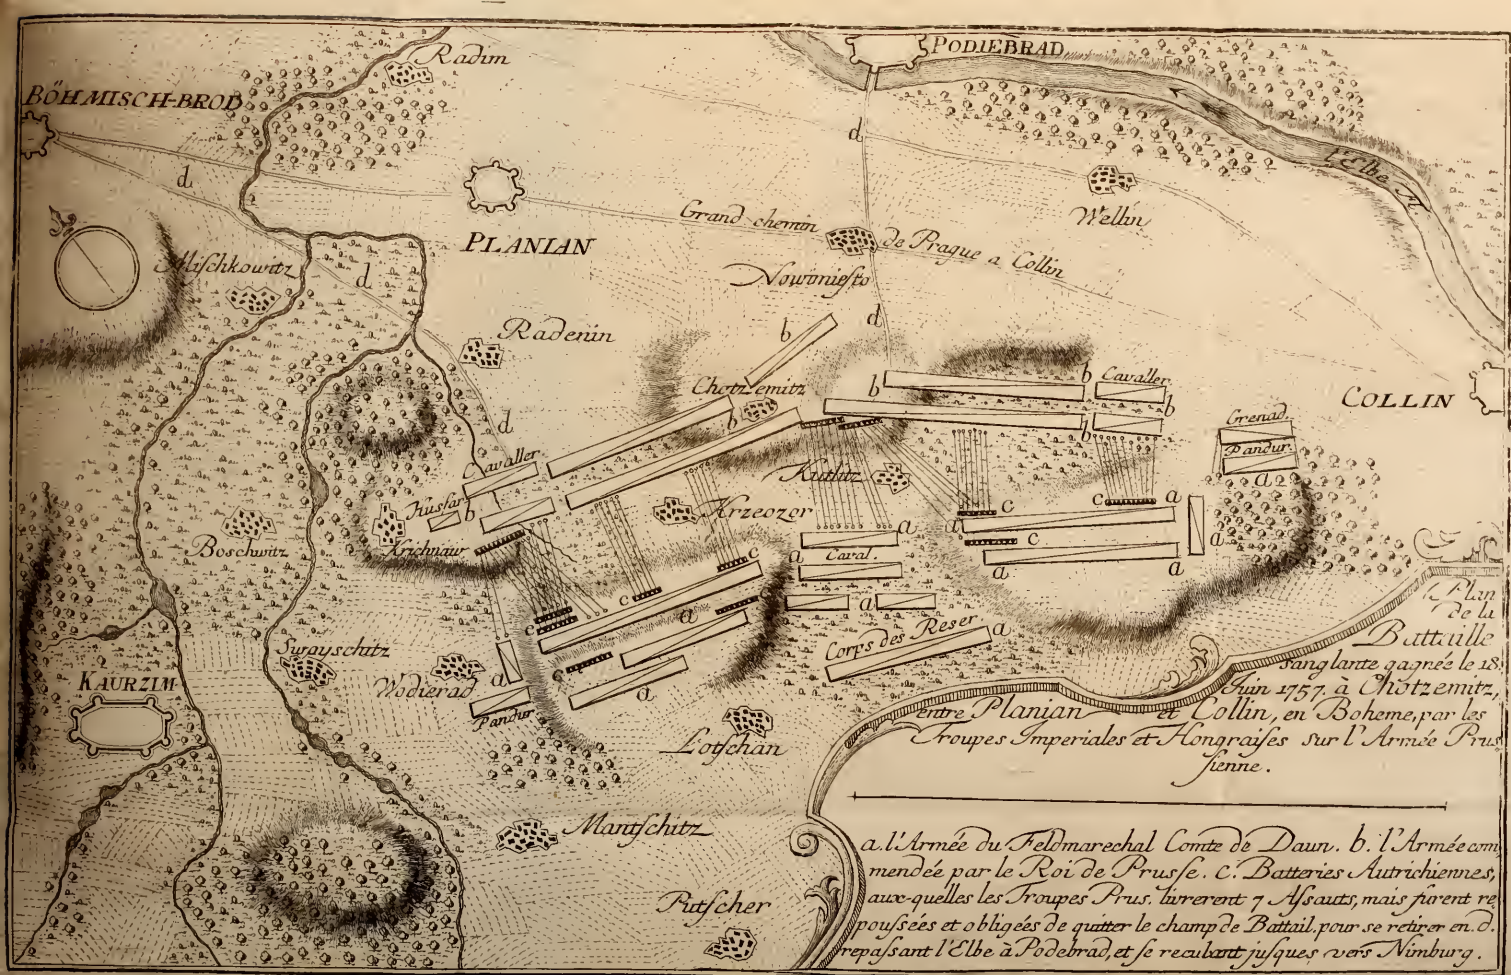 Radim
PODIEBRAD
BÖHMISCH-BROD
d
d
l'Elbe fl.
Wellin
Grand chemin
de Prague a Collin
PLANIAN
Nowomiesto
Mischkowitz
d
d
Radenin
b
Chotzemitz
b
b
Cavaller
b
b
b
COLLIN
d
Cavaller
Grenad.
Pandur.
a
Husfar
b
Krichnaw
Krzeozor
Kutlitz
Boschwitz
a
a
Caval.
a
c
c
a
a
c
a
a
a
c
c
c
c
a
c
a
a
Corps des Reser
a
a
Pandur
Swoyschitz
Wodierad
KAURZIM
Lotschan
Mantschitz
Putscher
Plan
de la
Battaille
sanglante gagnée le 18.
Juin 1757. à Chotzemitz,
entre Planian et Collin, en Boheme, par les
Troupes Imperiales et Hongraises sur l'Armée Prus
sienne.
a. l'Armée du Feldmarechal Comte de Daun. b. l'Armée com
mendée par le Roi de Prusse. c. Batteries Autrichiennes,
aux-quelles les Troupes Prus. livrerent 7 Assauts, mais furent re
poussées et obligées de quitter le champ de Battail. pour se retirer en. d.
repassant l'Elbe à Podebrad, et se reculant jusques vers Nimburg.